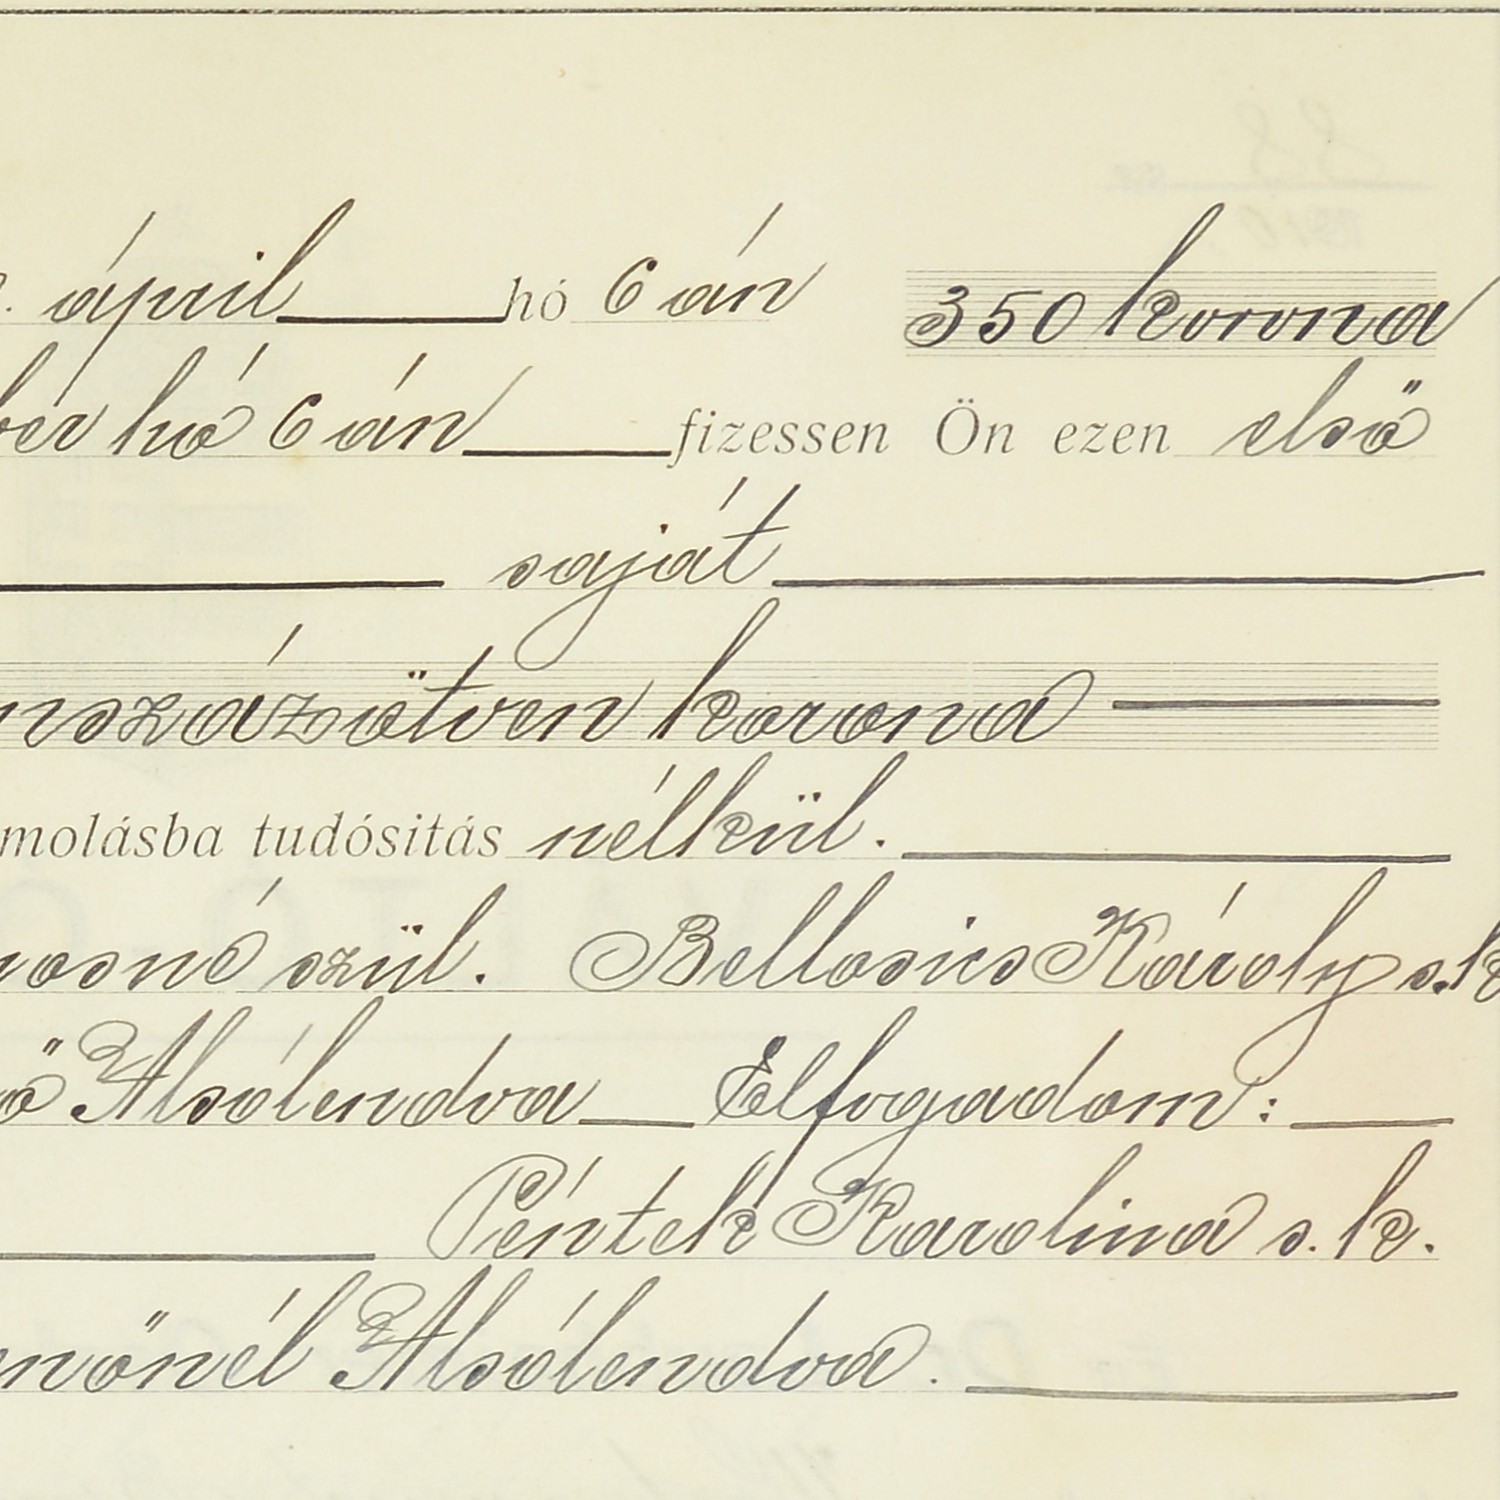 április hó 6án 350 korona
hó 6án fizessen Ön ezen első
saját
korona
tudósitás nélkül.
szül. Bellosics Károly s.k
Alsólendva Elfogadom:
Péntek Karolina s.k.
Alsólendva.